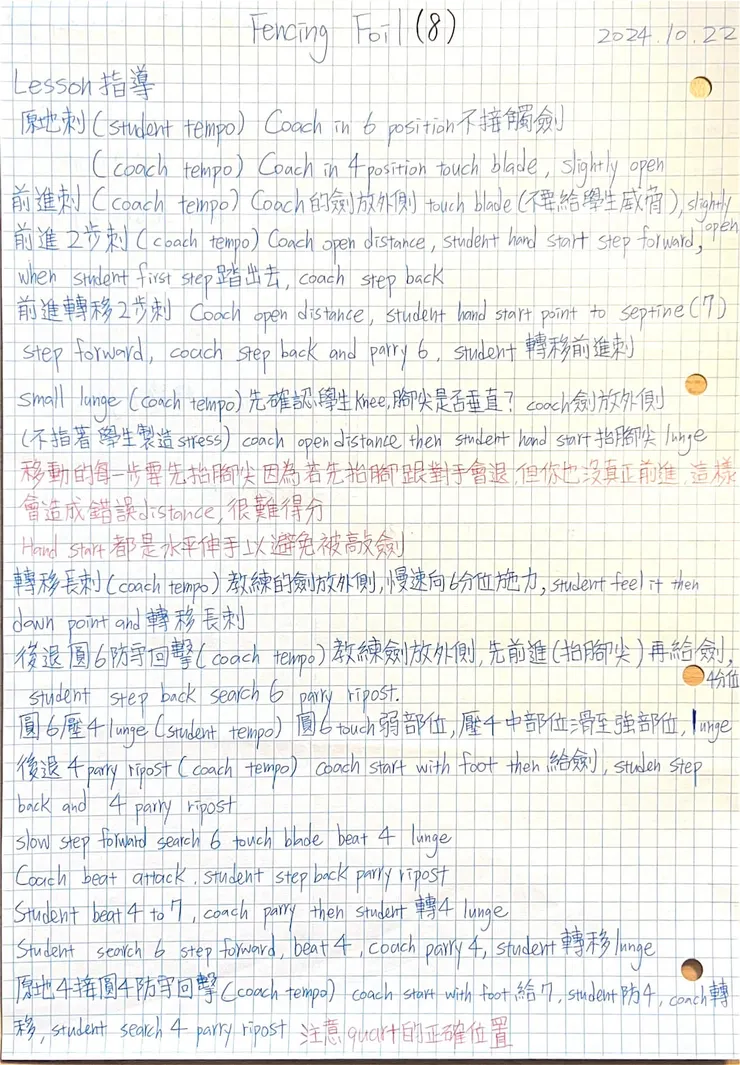 Fencing Foil (8)
2024.10.22
Lesson 指導
原地刺 (student tempo) Coach in 6 position 不接觸劍
(coach tempo) Coach in 4 position touch blade, slightly open
前進刺 (coach tempo) Coach的劍放外側 touch blade (不要給學生威脅), slightly open
前進2步刺 (coach tempo) Coach open distance, student hand start step forward,
when student first step踏出去, coach step back
前進轉移2步刺 Coach open distance, student hand start point to septine (7)
step forward, coach step back and parry 6, student 轉移前進刺
small lunge (coach tempo) 先確認學生knee,腳尖是否垂直? coach劍放外側
(不指著學生製造stress) coach open distance then student hand start 抬腳尖 lunge
移動的每一步要先抬腳尖因為若先抬腳跟對手會退,但你也沒真正前進,這樣
會造成錯誤distance,很難得分
Hand start 都是水平伸手以避免被敲劍
轉移長刺 (coach tempo) 教練的劍放外側,慢速向6分位施力, student feel it then
down point and 轉移長刺
後退圓6防守回擊 (coach tempo) 教練劍放外側,先前進(抬腳尖)再給劍,
4分位
student step back search 6 parry ripost.
圓6壓4 lunge (student tempo) 圓6 touch弱部位,壓4中部位滑至強部位, lunge
後退4 parry ripost (coach tempo) coach start with foot then 給劍, studen step
back and 4 parry ripost
slow step forward search 6 touch blade beat 4 lunge
Coach beat attack, student step back parry ripost
Student beat 4 to 7, coach parry then student 轉4 lunge
Student search 6 step forward, beat 4, coach parry 4, student 轉移lunge
原地4接圓4防守回擊 (coach tempo) coach start with foot 給7, student防4, coach轉
移, student search 4 parry ripost 注意quart的正確位置